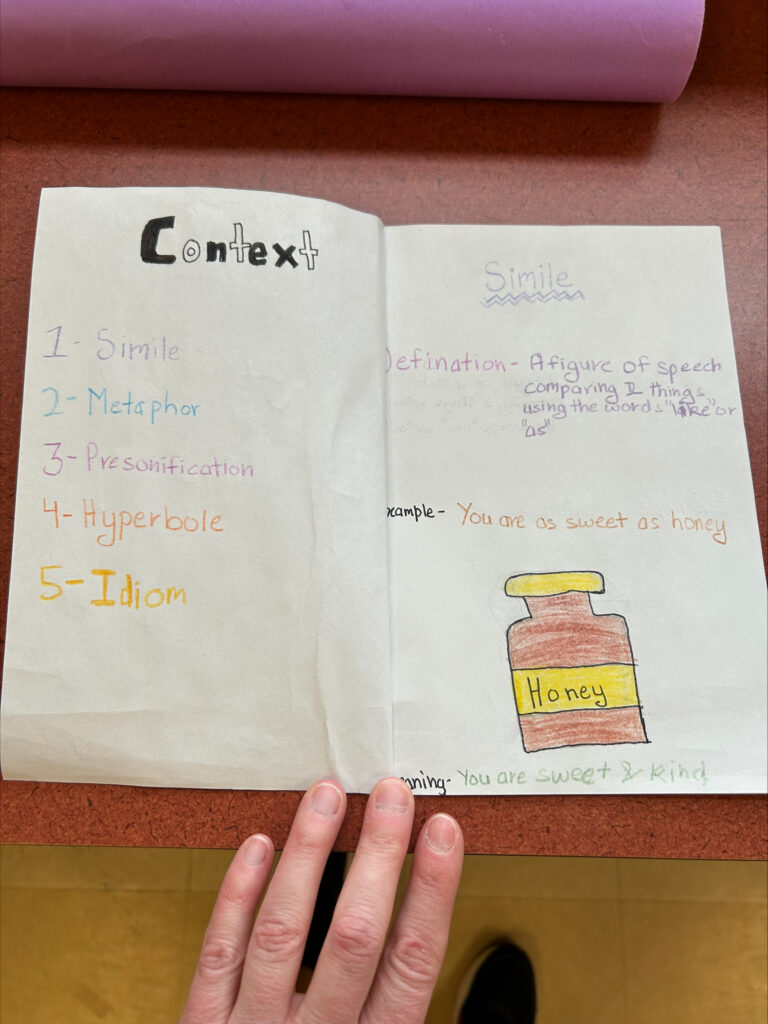 Context
1- Simile
2- Metaphor
3- Presonification
4- Hyperbole
5- Idiom
Simile
efination - A figure of speech
comparing 2 things
using the words "like" or
"as"
xample - You are as sweet as honey
Honey
nning- You are sweet & kind